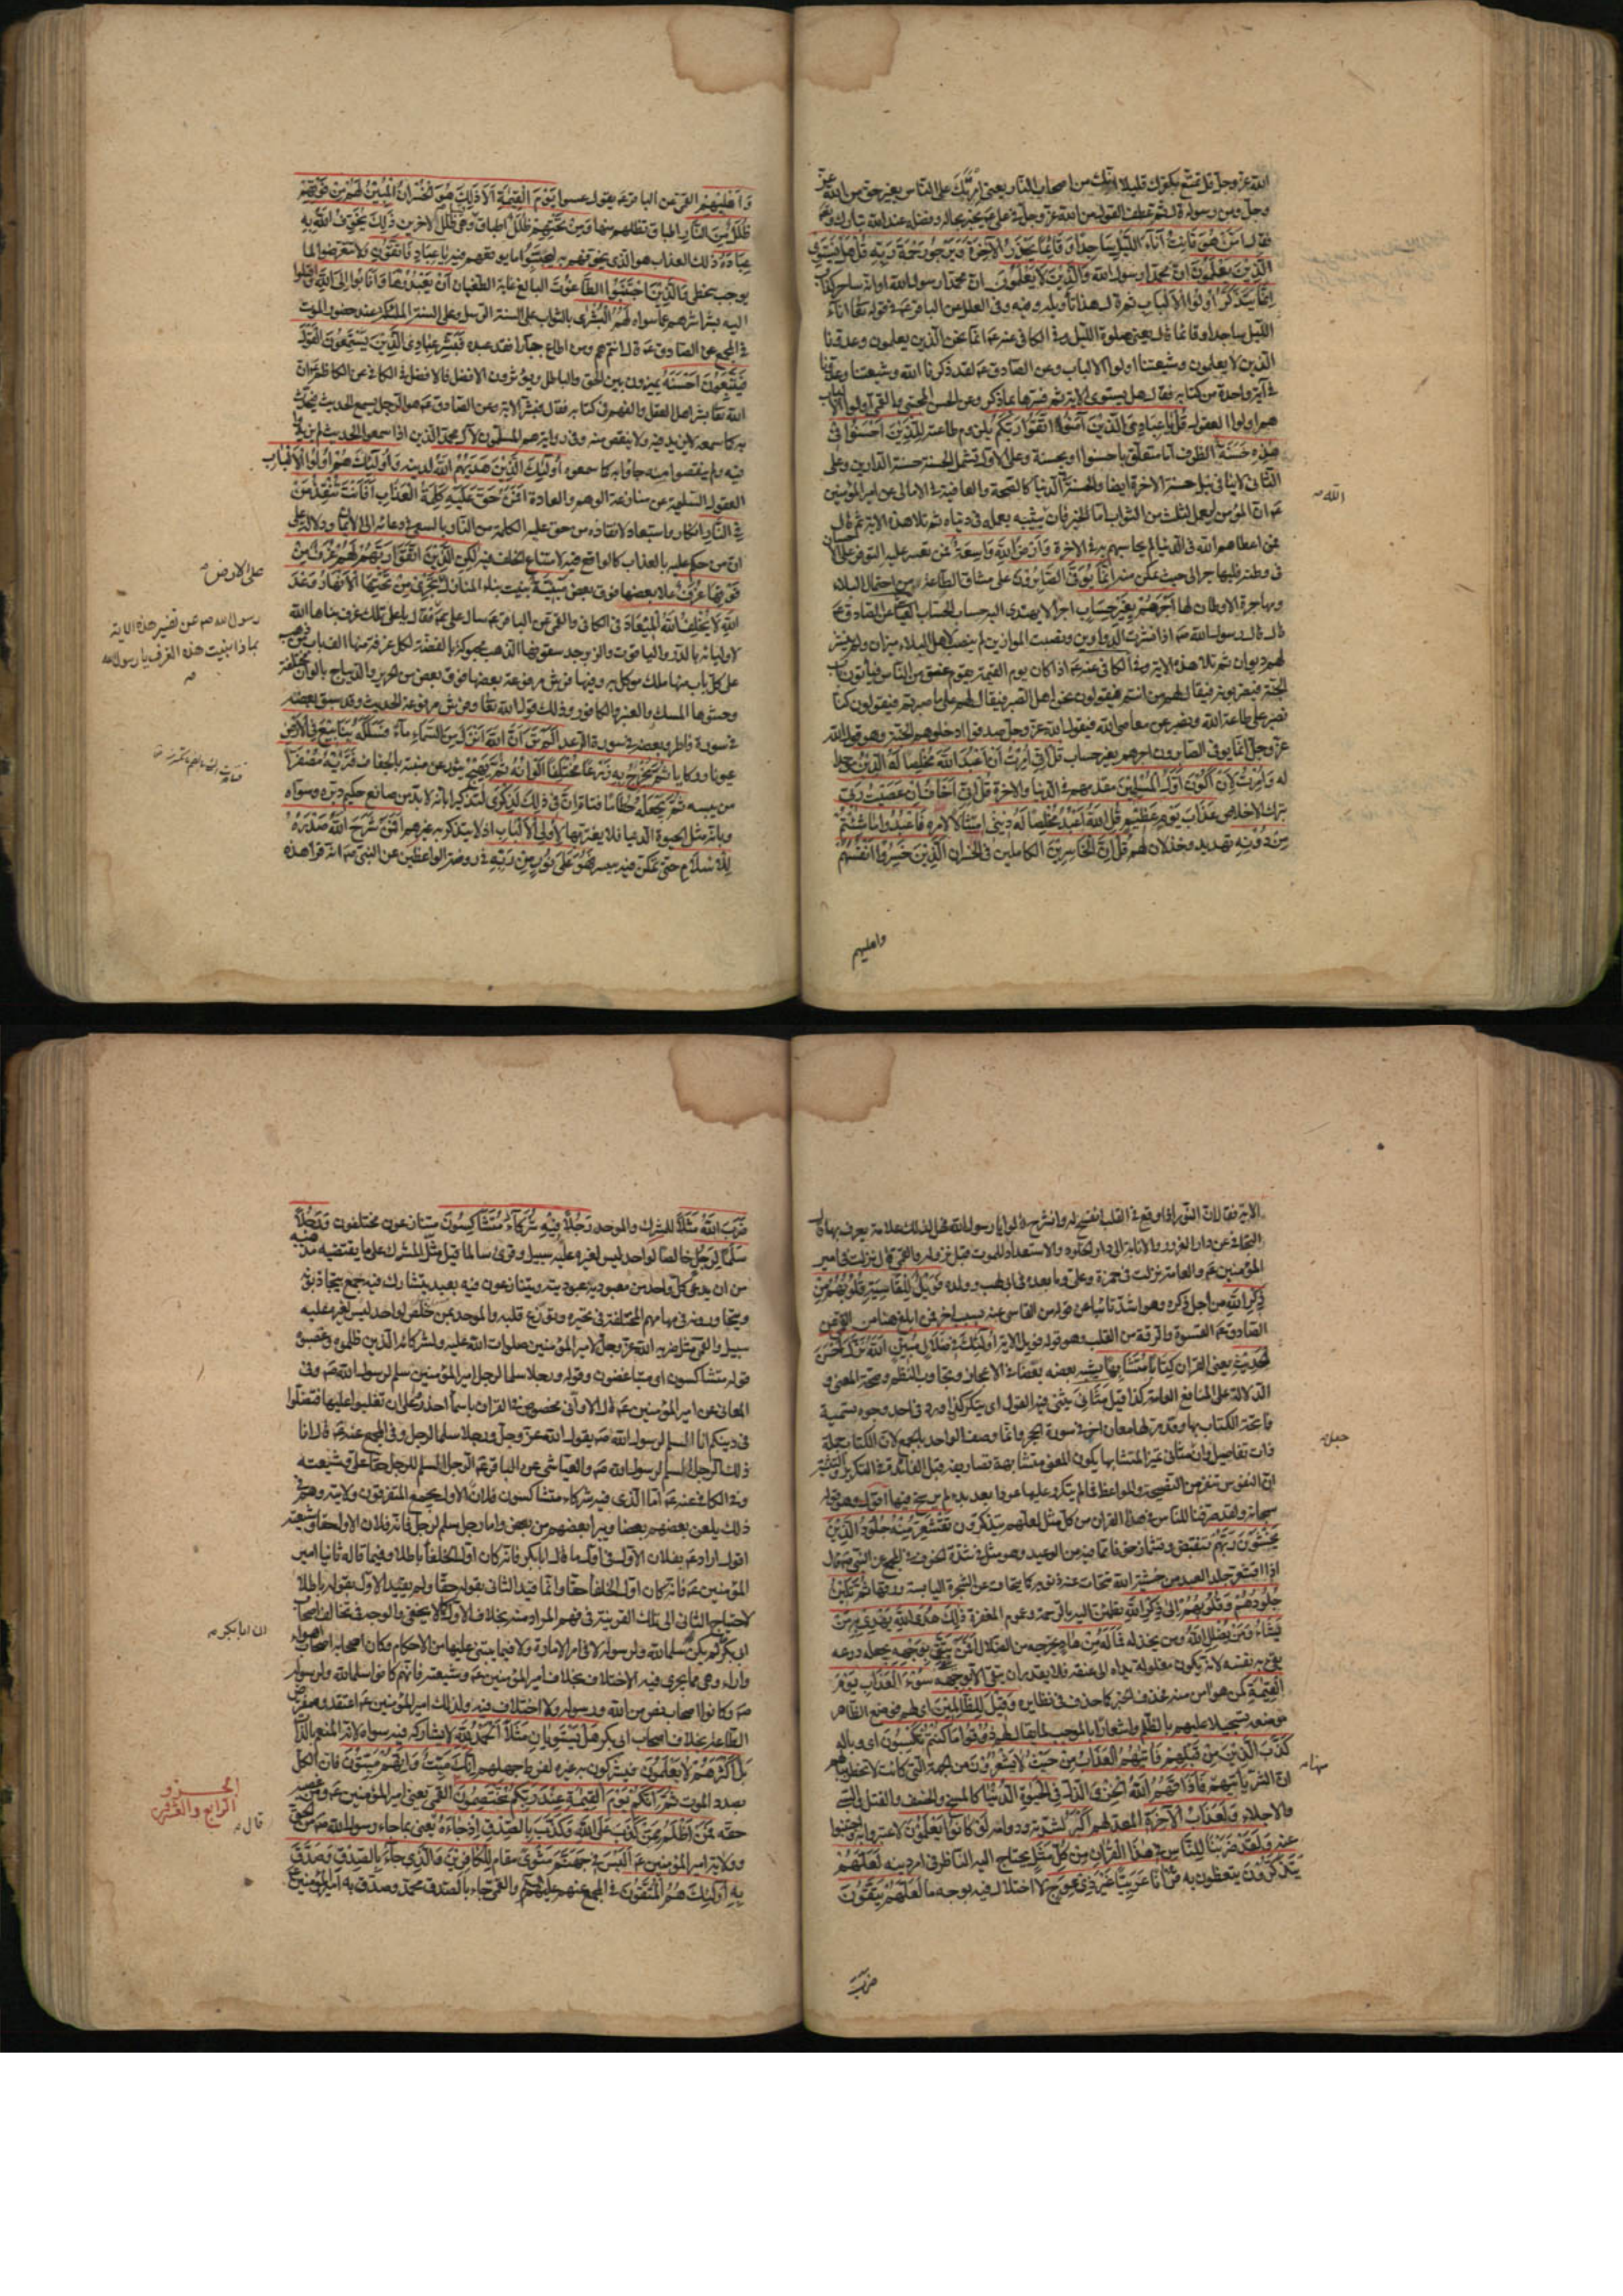 الله عزّ وجلّ قل تمتّع بكفرك قليلا انّك من اصحاب النّار يعني امرتك على النّاس بغير حق من الله عزّ
وجلّ ومن رسوله قال ثم عطف القول من الله عزّ وجلّ في علي عم يخبر بحاله وفضله عند الله تبارك وتعا
فقال امّن هو قانت آناء الليل ساجدا وقائما يحذر الآخرة ويرجو رحمة ربّه قل هل يستوى
الّذين يعلمون انّ محمّدا رسول الله والّذين لا يعلمون انّ محمّدا رسول الله او انّه ساحر كذّاب
انّما يتذكّر اولوا الالباب ثم قال هذا تأويله وفيه وفي العلل عن الباقر عم في قوله تعا آناء
الليل ساجدا وقائما قال يعني صلوة الليل وفي الكافي عنه عم انّما نحن الّذين يعلمون وعدوّنا
الّذين لا يعلمون وشيعتنا اولوا الالباب وعن الصّادق عم لقد ذكرنا الله وشيعتنا وعدوّنا
في آية واحدة من كتابه فقال هل يستوى الاية ثم فسّرها بما ذكر وعن الحسن المجتبى والقمّي اولوا الالباب
هم اولوا العقول قل يا عبادي الّذين آمنوا اتّقوا ربّكم بلزوم طاعته للّذين احسنوا في
هذه حسنة الظرف امّا متعلّق باحسنوا او بحسنة وعلى الاوّل تشمل الحسنة حسنة الدارين وعلى
الثّاني لا ينافي نيل حسنة الاخرة ايضا والحسنة في الدّنيا كالصّحة والعافية في الامالي عن امير المؤمنين
عم انّ المؤمن يعمل لثلث من الثواب امّا لخير فانّ يثيبه بعمله في دنياه ثم تلا هذه الاية ثم قال
فمن اعطاهم الله في الدّنيا لم يحاسبهم به في الاخرة وارض الله واسعة فمن تعسّر عليه التوفّر على الاحسان
في وطنه فليهاجر الى حيث تمكّن منه انّما يوفّى الصّابرون على مشاقّ الطّاعة من احتمال البلاء
ومهاجرة الاوطان لها اجرهم بغير حساب اجرا لا يهتدى اليه حساب الحسّاب العيّاشي عن الصّادق عم
قال قال رسول الله صم اذا نشرت الدواوين ونصبت الموازين لم ينصب لاهل البلاء ميزان ولم ينشر
لهم ديوان ثم تلا هذه الاية وفي الكافي عنه عم اذا كان يوم القيمة يقوم عنق من النّاس فيأتون باب
الجنّة فيضربونه فيقال لهم من انتم فيقولون نحن اهل الصبر فيقال لهم على ما صبرتم فيقولون كنّا
نصبر على طاعة الله ونصبر عن معاصي الله فيقول الله عزّ وجلّ صدقوا ادخلوهم الجنّة وهو قول الله
عزّ وجلّ انّما يوفّى الصابرون اجرهم بغير حساب قل انّي امرت ان اعبد الله مخلصا له الدّين موحّدا
له وامرت لان اكون اوّل المسلمين مقدّمهم في الدّنيا والاخرة قل انّي اخاف ان عصيت ربّي
بترك الاخلاص عذاب يوم عظيم قل الله اعبد مخلصا له ديني امتثالا لامره فاعبدوا ما شئتم
من دونه تهديد وخذلان لهم قل انّ الخاسرين الكاملين في الخسران الّذين خسروا انفسهم
واهليهم
الله
واهليهم القمّي عن الباقر عم يقول غبنوا يوم القيمة الا ذلك هو الخسران المبين لهم من فوقهم
ظلل من النّار اطباق تظلّهم منها ومن تحتهم ظلل اطباق وهي ظلل الاخرين ذلك يخوّف الله به
عباده ذلك العذاب هو الّذي يخوّفهم به ليجتنبوا ما يوقعهم فيه يا عباد فاتّقون ولا تتعرّضوا لما
يوجب سخطي والّذين اجتنبوا الطّاغوت البالغ غاية الطغيان ان يعبدوها وانابوا الى الله واقبلوا
اليه بشراشرهم عمّا سواه لهم البشرى بالثواب على السنة الرّسل وعلى السنة الملئكة عند حضور الموت
في المجمع عن الصّادق عم قال انتم هم ومن اطاع جبّارا فقد عبده فبشّر عبادي الّذين يستمعون القول
فيتّبعون احسنه يميزون بين الحق والباطل ويؤثرون الافضل فالافضل في الكافي عن الكاظم عم انّ
الله تعا بشّر اهل العقل والفهم في كتابه فقال فبشّر الاية وعن الصّادق عم هو الرّجل يسمع الحديث فيحدّث
به كما سمعه لا يزيد فيه ولا ينقص منه وفي رواية هم المسلّمون لآل محمّد الّذين اذا سمعوا الحديث لم يزيدوا
فيه ولم ينقصوا منه جاؤا به كما سمعوه اولئك الّذين هديهم الله لدينه واولئك هم اولوا الالباب
العقول السّليمة عن منازعة الوهم والعادة افمن حقّ عليه كلمة العذاب افانت تنقذ من
في النّار انكار واستبعاد لانقاذه من حق عليه الكلمة من النّار بالسعي في دعائه الى الايمان ودلالة على
انّ من حكم عليه بالعذاب كالواقع فيه لامتناع الخلف فيه لكن الّذين اتّقوا ربّهم لهم غرف من
فوقها غرف علالي بعضها فوق بعض مبنيّة بنيت بناء المنازل تجري من تحتها الانهار وعد
الله لا يخلف الله الميعاد في الكافي والقمّي عن الباقر عم سأل علي عم فقال يا علي تلك غرف بناها الله
لاوليائه بالدّر والياقوت والزبرجد سقوفها الذهب محبوكة بالفضّة لكلّ غرفة منها الف باب من ذهب
على كل باب منها ملك موكّل به وفيها فرش مرفوعة بعضها فوق بعض من الحرير والديباج بالوان مختلفة
وحشوها المسك والعنبر والكافور وذلك قول الله تعا وفرش مرفوعة الحديث وقد سبق بعضه
في سورة فاطر وبعضه في سورة الرعد الم تر انّ الله انزل من السّماء ماء فسلكه ينابيع في الارض
عيونا وركايا ثمّ يخرج به زرعا مختلفا الوانه ثمّ يهيج يثور عن منبته بالجفاف فتريه مصفرّا
من يبسه ثمّ يجعله حطاما فتاتا انّ في ذلك لذكرى لتذكيرا بانّه لا بدّ من صانع حكيم دبّره وسوّاه
وبانّه مثل الحيوة الدنيا فلا يغترّ بها لاولي الالباب اذ لا يتذكّر به غيرهم افمن شرح الله صدره
للاسلام حتى تمكّن فيه بيسر فهو على نور من ربّه في روضة الواعظين عن النبيّ صم انّه قرأ هذه
على الارض
رسول الله صم عن تفسير هذه الاية
بماذا بنيت هذه الغرف يا رسول الله
الاية فقال انّ النّور اذا وقع في القلب انفسح له وانشرح قالوا يا رسول الله فهل لذلك علامة يعرف بها قال
التجافي عن دار الغرور والانابة الى دار الخلود والاستعداد للموت قبل نزوله والقمّي قال نزلت في امير
المؤمنين عم والعامة نزلت في حمزة وعلي وما بعده في ابي لهب وولده فويل للقاسية قلوبهم من
ذكر الله من اجل ذكره وهو اشدّ تأبيا عن قوله من القاسي عنه بسبب اخر فمن ابلغ هنا من
الصّادق عم القسوة والرقّة من القلب وهو قوله فويل الاية اولئك في ضلال مبين الله نزّل احسن
الحديث يعني القران كتابا متشابها يشبه بعضه بعضا في الاعجاز وتجاوب النّظم وصحة المعنى و
الدّلالة على المنافع العامة كذا قيل مثاني يثنى فيه القول اي يتكرّر كذا ورد في احد وجوه تسمية
فاتحة الكتاب بها وقد مرّ لها معان اخر في سورة الحجر وانّما وصف الواحد بالجمع لانّ الكتاب جملة
ذات تفاصيل وان مثاني تميّز المتشابها يكون المعنى متشابهة تصاريفه قيل الفائدة في التكرير والتثنية
انّ النفوس تنفر من النّصيحة والمواعظ فما لم يتكرّر عليها عودا بعد بدء لم يرسخ فيها اقول وهو قوله
سبحانه ولقد صرّفنا للنّاس في هذا القران من كلّ مثل لعلّهم يتذكّرون تقشعرّ منه جلود الّذين
يخشون ربّهم تنقبض وتشمأزّ خوفا ممّا فيه من الوعيد وهو مثل في شدّة الخوف في المجمع عن النبيّ صم قال
اذا اقشعرّ جلد العبد من خشية الله تحاتّت عنه ذنوبه كما يتحات عن الشجرة اليابسة ورقها ثمّ تلين
جلودهم وقلوبهم الى ذكر الله تطمئنّ اليه بالرّحمة وعموم المغفرة ذلك هدى الله يهدي به من
يشاء ومن يضلل الله ومن يخذله فما له من هاد يخرجه من الضلال افمن يتّقي بوجهه يجعله درعه
يقي به نفسه لانّه يكون مغلولة يداه الى عنقه فلا يقدر ان يتّقي الّا بوجهه سوء العذاب يوم
القيمة كمن هو آمن منه فحذف الخبر كما حذف في نظايره وقيل للظالمين اي لهم فوضع الظّاهر
موضعه تسجيلا عليهم بالظّلم واشعارا بالموجب لما يقال لهم ذوقوا ما كنتم تكسبون اي وباله
كذّب الّذين من قبلهم فاتيهم العذاب من حيث لا يشعرون من الجهة الّتي كانت لا تخطر ببالهم
انّ الشرّ يأتيهم فاذاقهم الله الخزي الذّل في الحيوة الدّنيا كالمسخ والخسف والقتل والسّبي
والاجلاء ولعذاب الآخرة المعدّ لهم اكبر لشدّته ودوامه لو كانوا يعلمون لاعتبروا به واجتنبوا
عنه ولقد ضربنا للنّاس في هذا القران من كلّ مثل يحتاج اليه النّاظر في امر دينه لعلّهم
يتذكّرون يتّعظون به قرانا عربيّا غير ذي عوج لا اختلال فيه بوجه ما لعلّهم يتّقون
ضرب
جعل
ضرب الله مثلا للمشرك والموحد رجلا فيه شركاء متشاكسون متنازعون مختلفون ورجلا
سلما لرجل خالصا لواحد ليس لغيره عليه سبيل وقرئ سالما قيل مثّل المشرك على ما يقتضيه مذهبه
من ان يدعي كلّ واحد من معبوديه عبوديته ويتنازعون فيه بعبد يتشارك فيه جمع يتجاذبونه
ويتعاورونه في مهامهم المختلفة في تحيّره وتوزّع قلبه والموحد بمن خلص لواحد ليس لغيره عليه
سبيل والقمّي مثل ضربه الله عزّ وجلّ لامير المؤمنين صلوات الله عليه ولشركائه الّذين ظلموه وغصبوه
قوله متشاكسون اي متباغضون وقوله ورجلا سلما لرجل امير المؤمنين سلم لرسول الله صم وفي
المعاني عن امير المؤمنين عم قال الا وانّي مخصوص في القران باسماء احذروا ان تغلبوا عليها فتضلّوا
في دينكم انا السلم لرسول الله صم يقول الله عزّ وجلّ ورجلا سلما لرجل وفي المجمع عنه عم قال انا
ذلك الرّجل السلم لرسول الله صم والعيّاشي عن الباقر عم الرّجل السلم للرجل حقّا علي وشيعته
وفي الكافي عنه عم امّا الّذي فيه شركاء متشاكسون فلان الاول يجمع المتفرقون ولايته وهم في
ذلك يلعن بعضهم بعضا ويبرأ بعضهم من بعض وامّا رجل سلم لرجل فانّه فلان الاول حقّا وشيعته
اقول اراد عم بفلان الاوّل في اوّل ما قال ابابكر فانّه كان اوّل الخلفا باطلا وفيما قاله ثانيا امير
المؤمنين عم فانّه كان اوّل الخلفا حقّا وانّما قيد الثاني بقوله حقّا ولم يقيد الاوّل بقوله باطلا
لاحتياج الثاني الى تلك القرينة في فهم المراد منه بخلاف الاوّل كما لا يخفى والوجه في تخالف اصحاب
ابي بكر لم يكن سلما لله ولرسوله لا في امر الامارة ولا فيما يبتنى عليها من الاحكام وكان اصحابه اصحاب اهواء
وآراء وهي ممّا يجري فيه الاختلاف بخلاف امير المؤمنين عم وشيعته فانّهم كانوا سلما لله ولرسوله
صم وكانوا اصحاب نصّ من الله ورسوله ولا اختلاف فيه ولذلك امير المؤمنين عم اعتقدوه مفترض
الطّاعة بخلاف اصحاب ابي بكر هل يستويان مثلا الحمد لله لا يشاركه فيه سواه لانّه المنعم بالذّات
بل اكثرهم لا يعلمون فيشركون به غيره لفرط جهلهم انّك ميّت وانّهم ميّتون فانّ الكلّ
بصدد الموت ثمّ انّكم يوم القيمة عند ربّكم تختصمون القمّي يعني امير المؤمنين عم ومن غصبه
حقّه فمن اظلم ممّن كذب على الله وكذّب بالصّدق اذ جاءه يعني بما جاء به رسول الله صم من الحق
وولاية امير المؤمنين عم اليس في جهنّم مثوى مقام للكافرين والّذي جاء بالصدق وصدّق
به اولئك هم المتّقون في المجمع عنهم عليهم السلم والقمّي جاء بالصدق محمّد وصدّق به امير المؤمنين
ان ابابكر
الجزو
الرابع والعشرون
قال